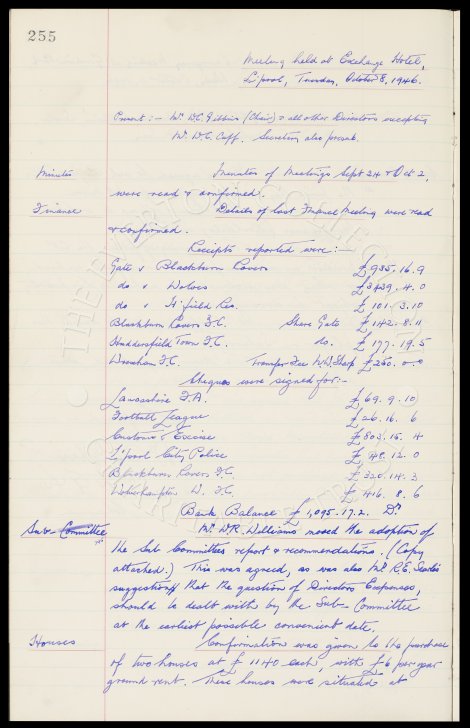 255
Meeting held at Exchange Hotel,
L'pool, Tuesday, October 8, 1946.
Present :- Mr W.C. Gibbins (Chair) & all other Directors excepting
Mr. W.C. Cuff. Secretary also present.
Minutes Minutes of Meetings Sept 24 & Oct 2,
were read & confirmed.
Finance Details of last Finance Meeting were read
& confirmed.
Receipts reported were :-
Gate v Blackburn Rovers £935.16.9
do v Wolves £3429.4.0
do v H'field Res. £101.3.10
Blackburn Rovers F.C. Share Gate £142.8.11
Huddersfield Town F.C. do. £177.19.5
Wrexham F.C. Transfer Fee N.W. Sharp £250.0.0
Cheques were signed for :-
Lancashire F.A. £69.9.10
Football League £26.16.6
Customs & Excise £803.15.4
L'pool City Police £48.12.0
Blackburn Rovers F.C. £320.14.3
Wolverhampton W. F.C. £416.8.6
Bank Balance £1,095.17.2. Dr
Sub-Committee Mr. W.R. Williams moved the adoption of
the Sub Committees report & recommendations. (Copy
attached.) This was agreed, as was also Mr. R.E. Searle's
suggestion that the question of Directors Expenses,
should be dealt with by the Sub-Committee
at the earliest possible convenient date.
Houses Confirmation was given to the purchase
of two houses at £1140 each, with £6 per year
ground rent. These houses were situated at